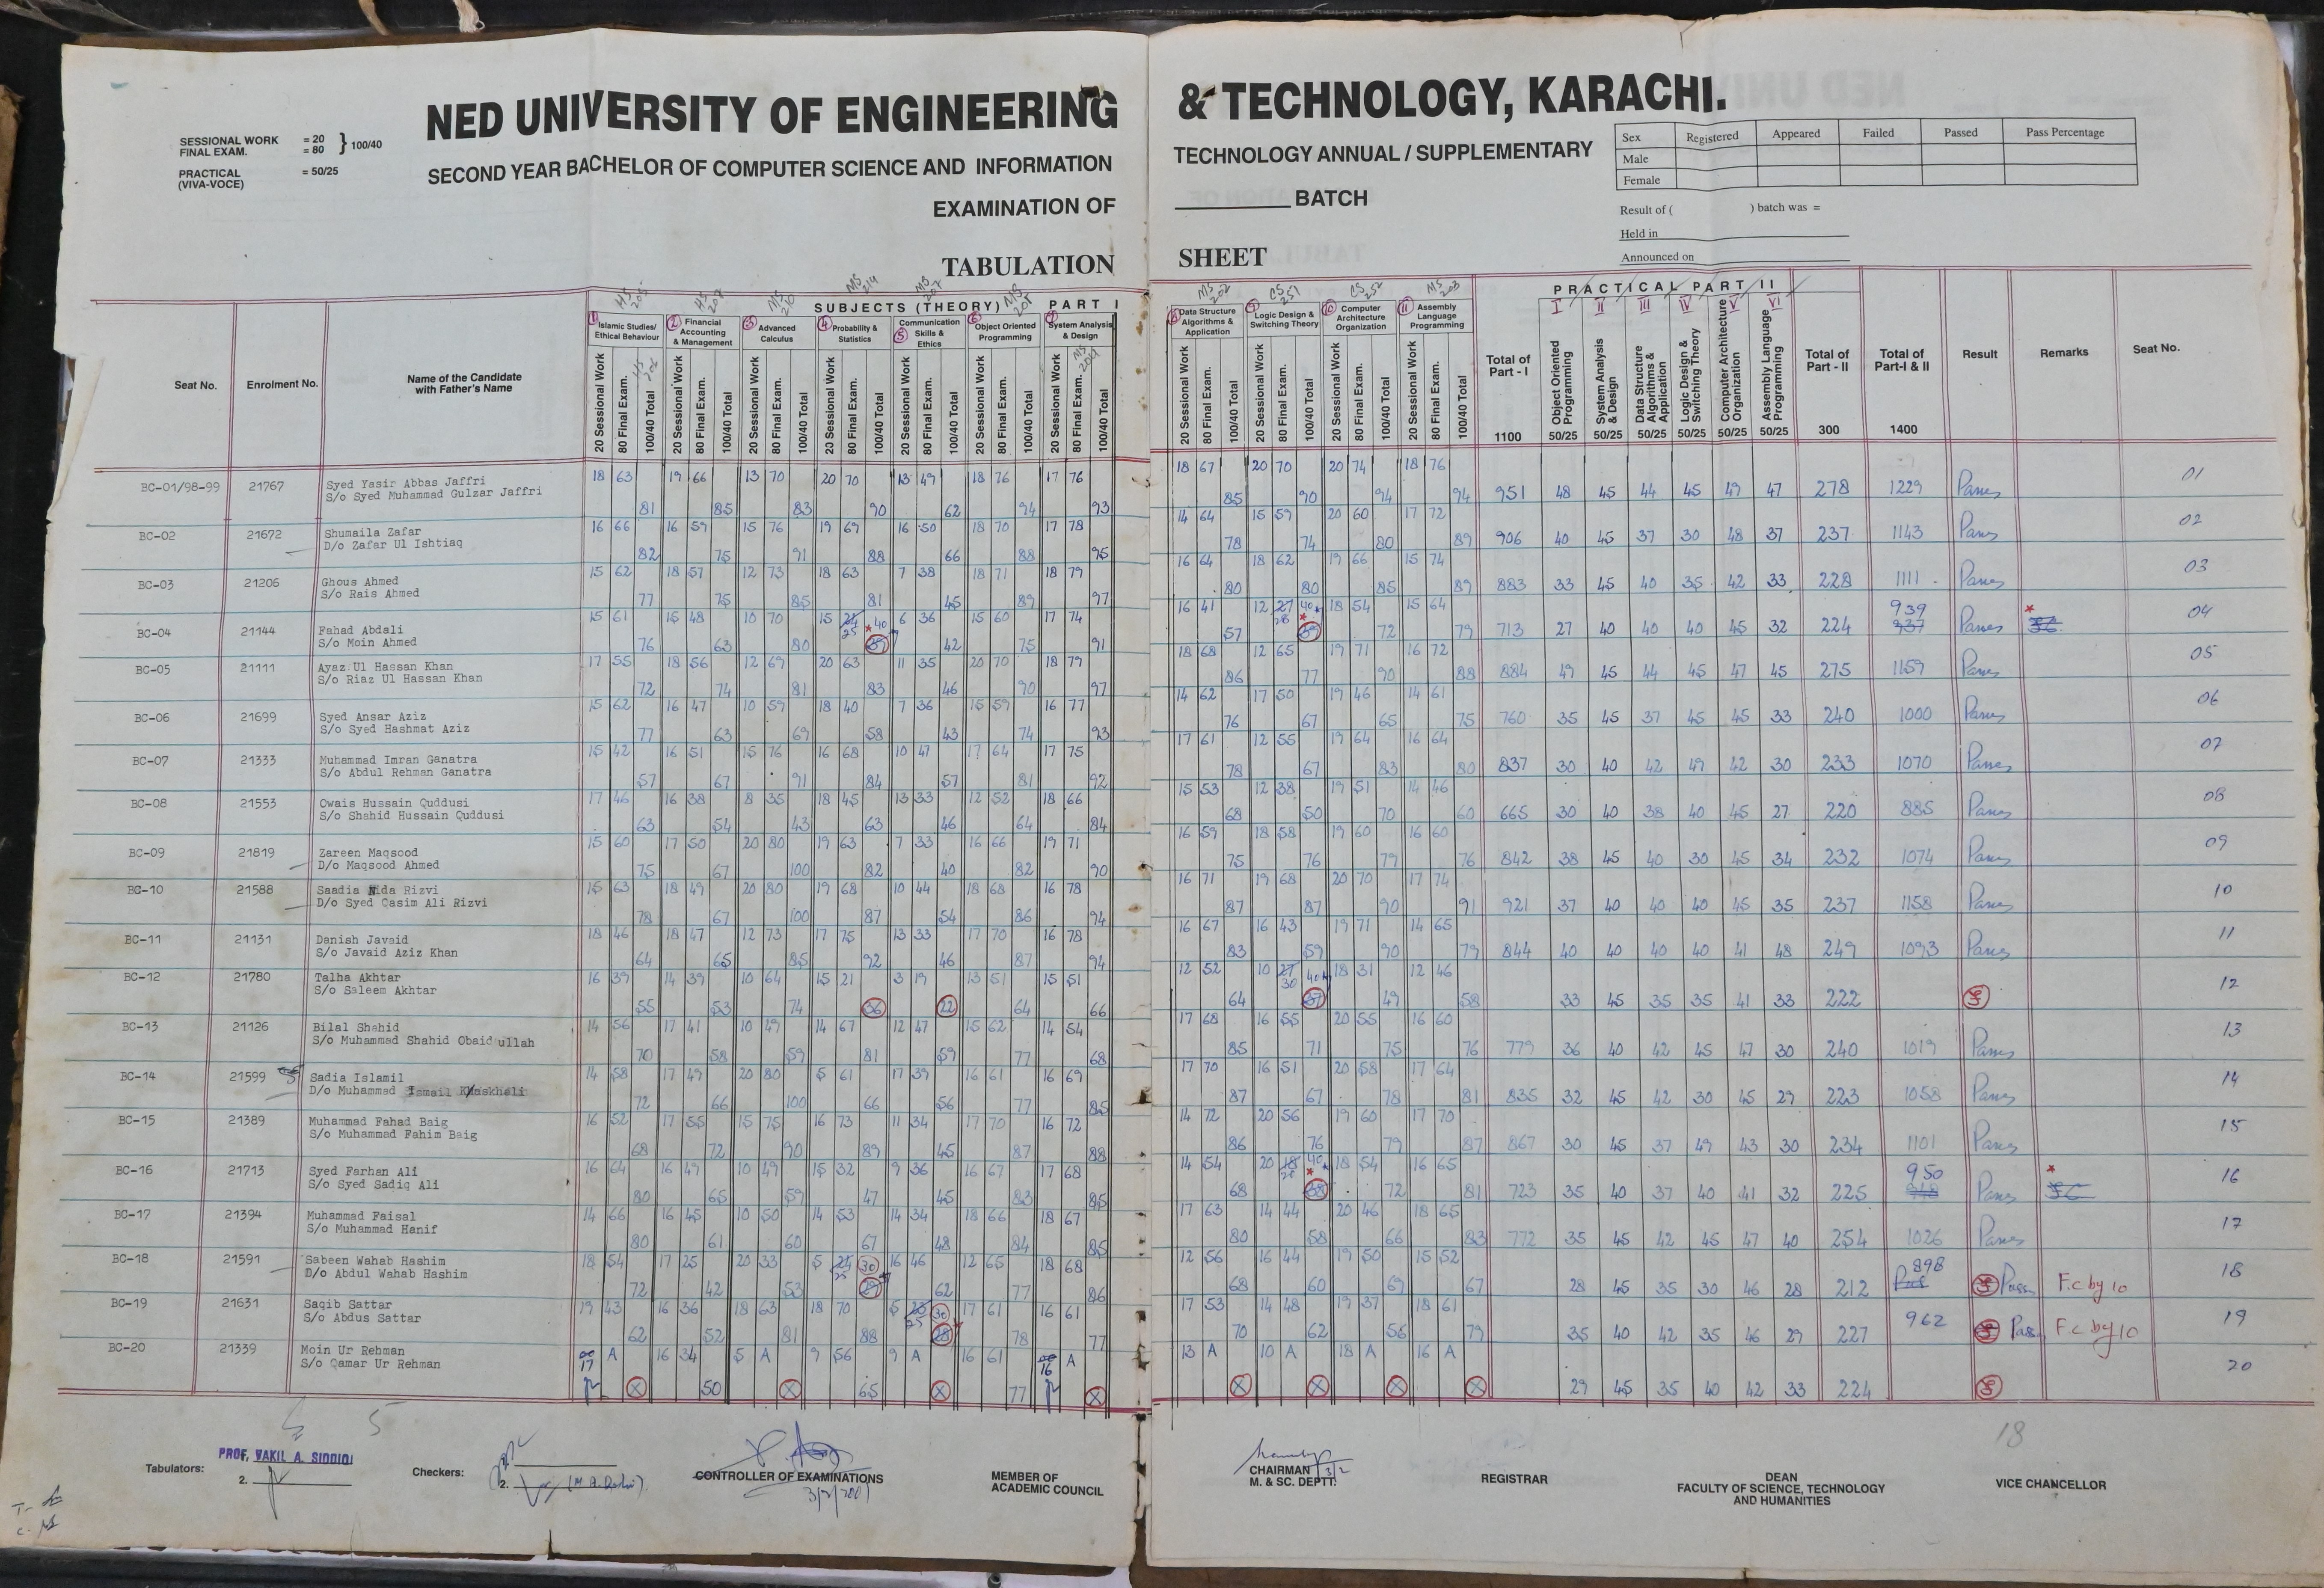 NED UNIVERSITY OF ENGINEERING & TECHNOLOGY, KARACHI.
SESSIONAL WORK = 20
FINAL EXAM. = 80 } 100/40
PRACTICAL = 50/25
(VIVA-VOCE)
SECOND YEAR BACHELOR OF COMPUTER SCIENCE AND INFORMATION TECHNOLOGY ANNUAL / SUPPLEMENTARY
EXAMINATION OF ________ BATCH
TABULATION SHEET
Sex Registered Appeared Failed Passed Pass Percentage
Male
Female
Result of ( ) batch was =
Held in
Announced on
SUBJECTS (THEORY) PART I
PRACTICAL PART II
Seat No. Enrolment No. Name of the Candidate with Father's Name
1 Islamic Studies/ Ethical Behaviour
2 Financial Accounting & Management
3 Advanced Calculus
4 Probability & Statistics
5 Communication Skills & Ethics
6 Object Oriented Programming
7 System Analysis & Design
8 Data Structure Algorithms & Application
9 Logic Design & Switching Theory
10 Computer Architecture Organization
11 Assembly Language Programming
20 Sessional Work 80 Final Exam. 100/40 Total
Total of Part - I 1100
I Object Oriented Programming 50/25
II System Analysis & Design 50/25
III Data Structure Algorithms & Application 50/25
IV Logic Design & Switching Theory 50/25
V Computer Architecture Organization 50/25
VI Assembly Language Programming 50/25
Total of Part - II 300
Total of Part-I & II 1400
Result Remarks Seat No.
BC-01/98-99 21767 Syed Yasir Abbas Jaffri
S/o Syed Muhammad Gulzar Jaffri
18 63 81 19 66 85 13 70 83 20 70 90 13 49 62 18 76 94 17 76 93 18 67 85 20 70 90 20 74 94 18 76 94 951 48 45 44 45 49 47 278 1229 Passes 01
BC-02 21672 Shumaila Zafar
D/o Zafar Ul Ishtiaq
16 66 82 16 59 75 15 76 91 19 69 88 16 50 66 18 70 88 17 78 95 14 64 78 15 59 74 20 60 80 17 72 89 906 40 45 37 30 48 37 237 1143 Passes 02
BC-03 21206 Ghous Ahmed
S/o Rais Ahmed
15 62 77 18 57 75 12 73 85 18 63 81 7 38 45 18 71 89 18 79 97 16 64 80 18 62 80 19 66 85 15 74 89 883 33 45 40 35 42 33 228 1111 Passes 03
BC-04 21144 Fahad Abdali
S/o Moin Ahmed
15 61 76 15 48 63 10 70 80 15 24 25 40 39 6 36 42 15 60 75 17 74 91 16 41 57 12 27 28 40 39 18 54 72 15 64 79 713 27 40 40 40 45 32 224 939 937 Passes 04
BC-05 21111 Ayaz Ul Hassan Khan
S/o Riaz Ul Hassan Khan
17 55 72 18 56 74 12 69 81 20 63 83 11 35 46 20 70 90 18 79 97 18 68 86 12 65 77 19 71 90 16 72 88 884 49 45 44 45 47 45 275 1159 Passes 05
BC-06 21699 Syed Ansar Aziz
S/o Syed Hashmat Aziz
15 62 77 16 47 63 10 59 69 18 40 58 7 36 43 15 59 74 16 77 93 14 62 76 17 50 67 19 46 65 14 61 75 760 35 45 37 45 45 33 240 1000 Passes 06
BC-07 21333 Muhammad Imran Ganatra
S/o Abdul Rehman Ganatra
15 42 57 16 51 67 15 76 91 16 68 84 10 47 57 17 64 81 17 75 92 17 61 78 12 55 67 19 64 83 16 64 80 837 30 40 42 49 42 30 233 1070 Passes 07
BC-08 21553 Owais Hussain Quddusi
S/o Shahid Hussain Quddusi
17 46 63 16 38 54 8 35 43 18 45 63 13 33 46 12 52 64 18 66 84 15 53 68 12 38 50 19 51 70 14 46 60 665 30 40 38 40 45 27 220 885 Passes 08
BC-09 21819 Zareen Maqsood
D/o Maqsood Ahmed
15 60 75 17 50 67 20 80 100 19 63 82 7 33 40 16 66 82 19 71 90 16 59 75 18 58 76 19 60 79 16 60 76 842 38 45 40 30 45 34 232 1074 Passes 09
BC-10 21588 Saadia Nida Rizvi
D/o Syed Qasim Ali Rizvi
15 63 78 18 49 67 20 80 100 19 68 87 10 44 54 18 68 86 16 78 94 16 71 87 19 68 87 20 70 90 17 74 91 921 37 40 40 40 45 35 237 1158 Passes 10
BC-11 21131 Danish Javaid
S/o Javaid Aziz Khan
18 46 64 18 47 65 12 73 85 17 75 92 13 33 46 17 70 87 16 78 94 16 67 83 16 43 59 19 71 90 14 65 79 844 40 40 40 40 41 48 249 1093 Passes 11
BC-12 21780 Talha Akhtar
S/o Saleem Akhtar
16 39 55 14 39 53 10 64 74 15 21 36 3 19 22 13 51 64 15 51 66 12 52 64 10 27 30 40 37 18 31 49 12 46 58 33 45 35 35 41 33 222 12
BC-13 21126 Bilal Shahid
S/o Muhammad Shahid Obaid ullah
14 56 70 17 41 58 10 49 59 14 67 81 12 47 59 15 62 77 14 54 68 17 68 85 16 55 71 20 55 75 16 60 76 779 36 40 42 45 47 30 240 1019 Passes 13
BC-14 21599 Sadia Islamil
D/o Muhammad Ismail Khaskheli
14 58 72 17 49 66 20 80 100 5 61 66 17 39 56 16 61 77 16 69 85 17 70 87 16 51 67 20 58 78 17 64 81 835 32 45 42 30 45 29 223 1058 Passes 14
BC-15 21389 Muhammad Fahad Baig
S/o Muhammad Fahim Baig
16 52 68 17 55 72 15 75 90 16 73 89 11 34 45 17 70 87 16 72 88 14 72 86 20 56 76 19 60 79 17 70 87 867 30 45 37 49 43 30 234 1101 Passes 15
BC-16 21713 Syed Farhan Ali
S/o Syed Sadiq Ali
16 64 80 16 49 65 10 49 59 15 32 47 9 36 45 16 67 83 17 68 85 14 54 68 20 18 20 40 38 18 54 72 16 65 81 723 35 40 37 40 41 32 225 950 Passes 16
BC-17 21394 Muhammad Faisal
S/o Muhammad Hanif
14 66 80 16 45 61 10 50 60 14 53 67 14 34 48 18 66 84 18 67 85 17 63 80 14 44 58 20 46 66 18 65 83 772 35 45 42 45 47 40 254 1026 Passes 17
BC-18 21591 Sabeen Wahab Hashim
D/o Abdul Wahab Hashim
18 54 72 17 25 42 20 33 53 5 24 25 30 29 16 46 62 12 65 77 18 68 86 12 56 68 16 44 60 19 50 69 15 52 67 28 45 35 30 46 28 212 898 Pass F.c by 10 18
BC-19 21631 Saqib Sattar
S/o Abdus Sattar
19 43 62 16 36 52 18 63 81 18 70 88 5 23 25 30 28 17 61 78 16 61 77 17 53 70 14 48 62 19 37 56 18 61 79 35 40 42 35 46 29 227 962 Pass F.c by 10 19
BC-20 21339 Moin Ur Rehman
S/o Qamar Ur Rehman
17 A X 16 34 50 5 A X 9 56 65 9 A X 16 61 77 16 A X 13 A X 10 A X 18 A X 16 A X 29 45 35 40 42 33 224 20
18
Tabulators: PROF. VAKIL A. SIDDIQI
2.
Checkers:
2.
CONTROLLER OF EXAMINATIONS
3/2/2001
MEMBER OF
ACADEMIC COUNCIL
CHAIRMAN 3/2
M. & SC. DEPTT.
REGISTRAR
DEAN
FACULTY OF SCIENCE, TECHNOLOGY
AND HUMANITIES
VICE CHANCELLOR